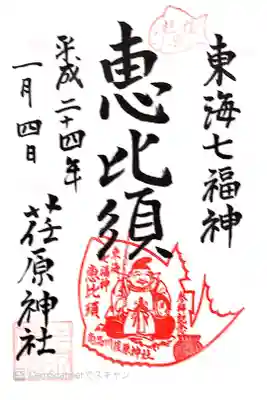 東海七福神
恵比須
平成二十四年
一月四日
荏原神社
東海
七福神
恵比須
荏原神社
CamScannerでスキャン